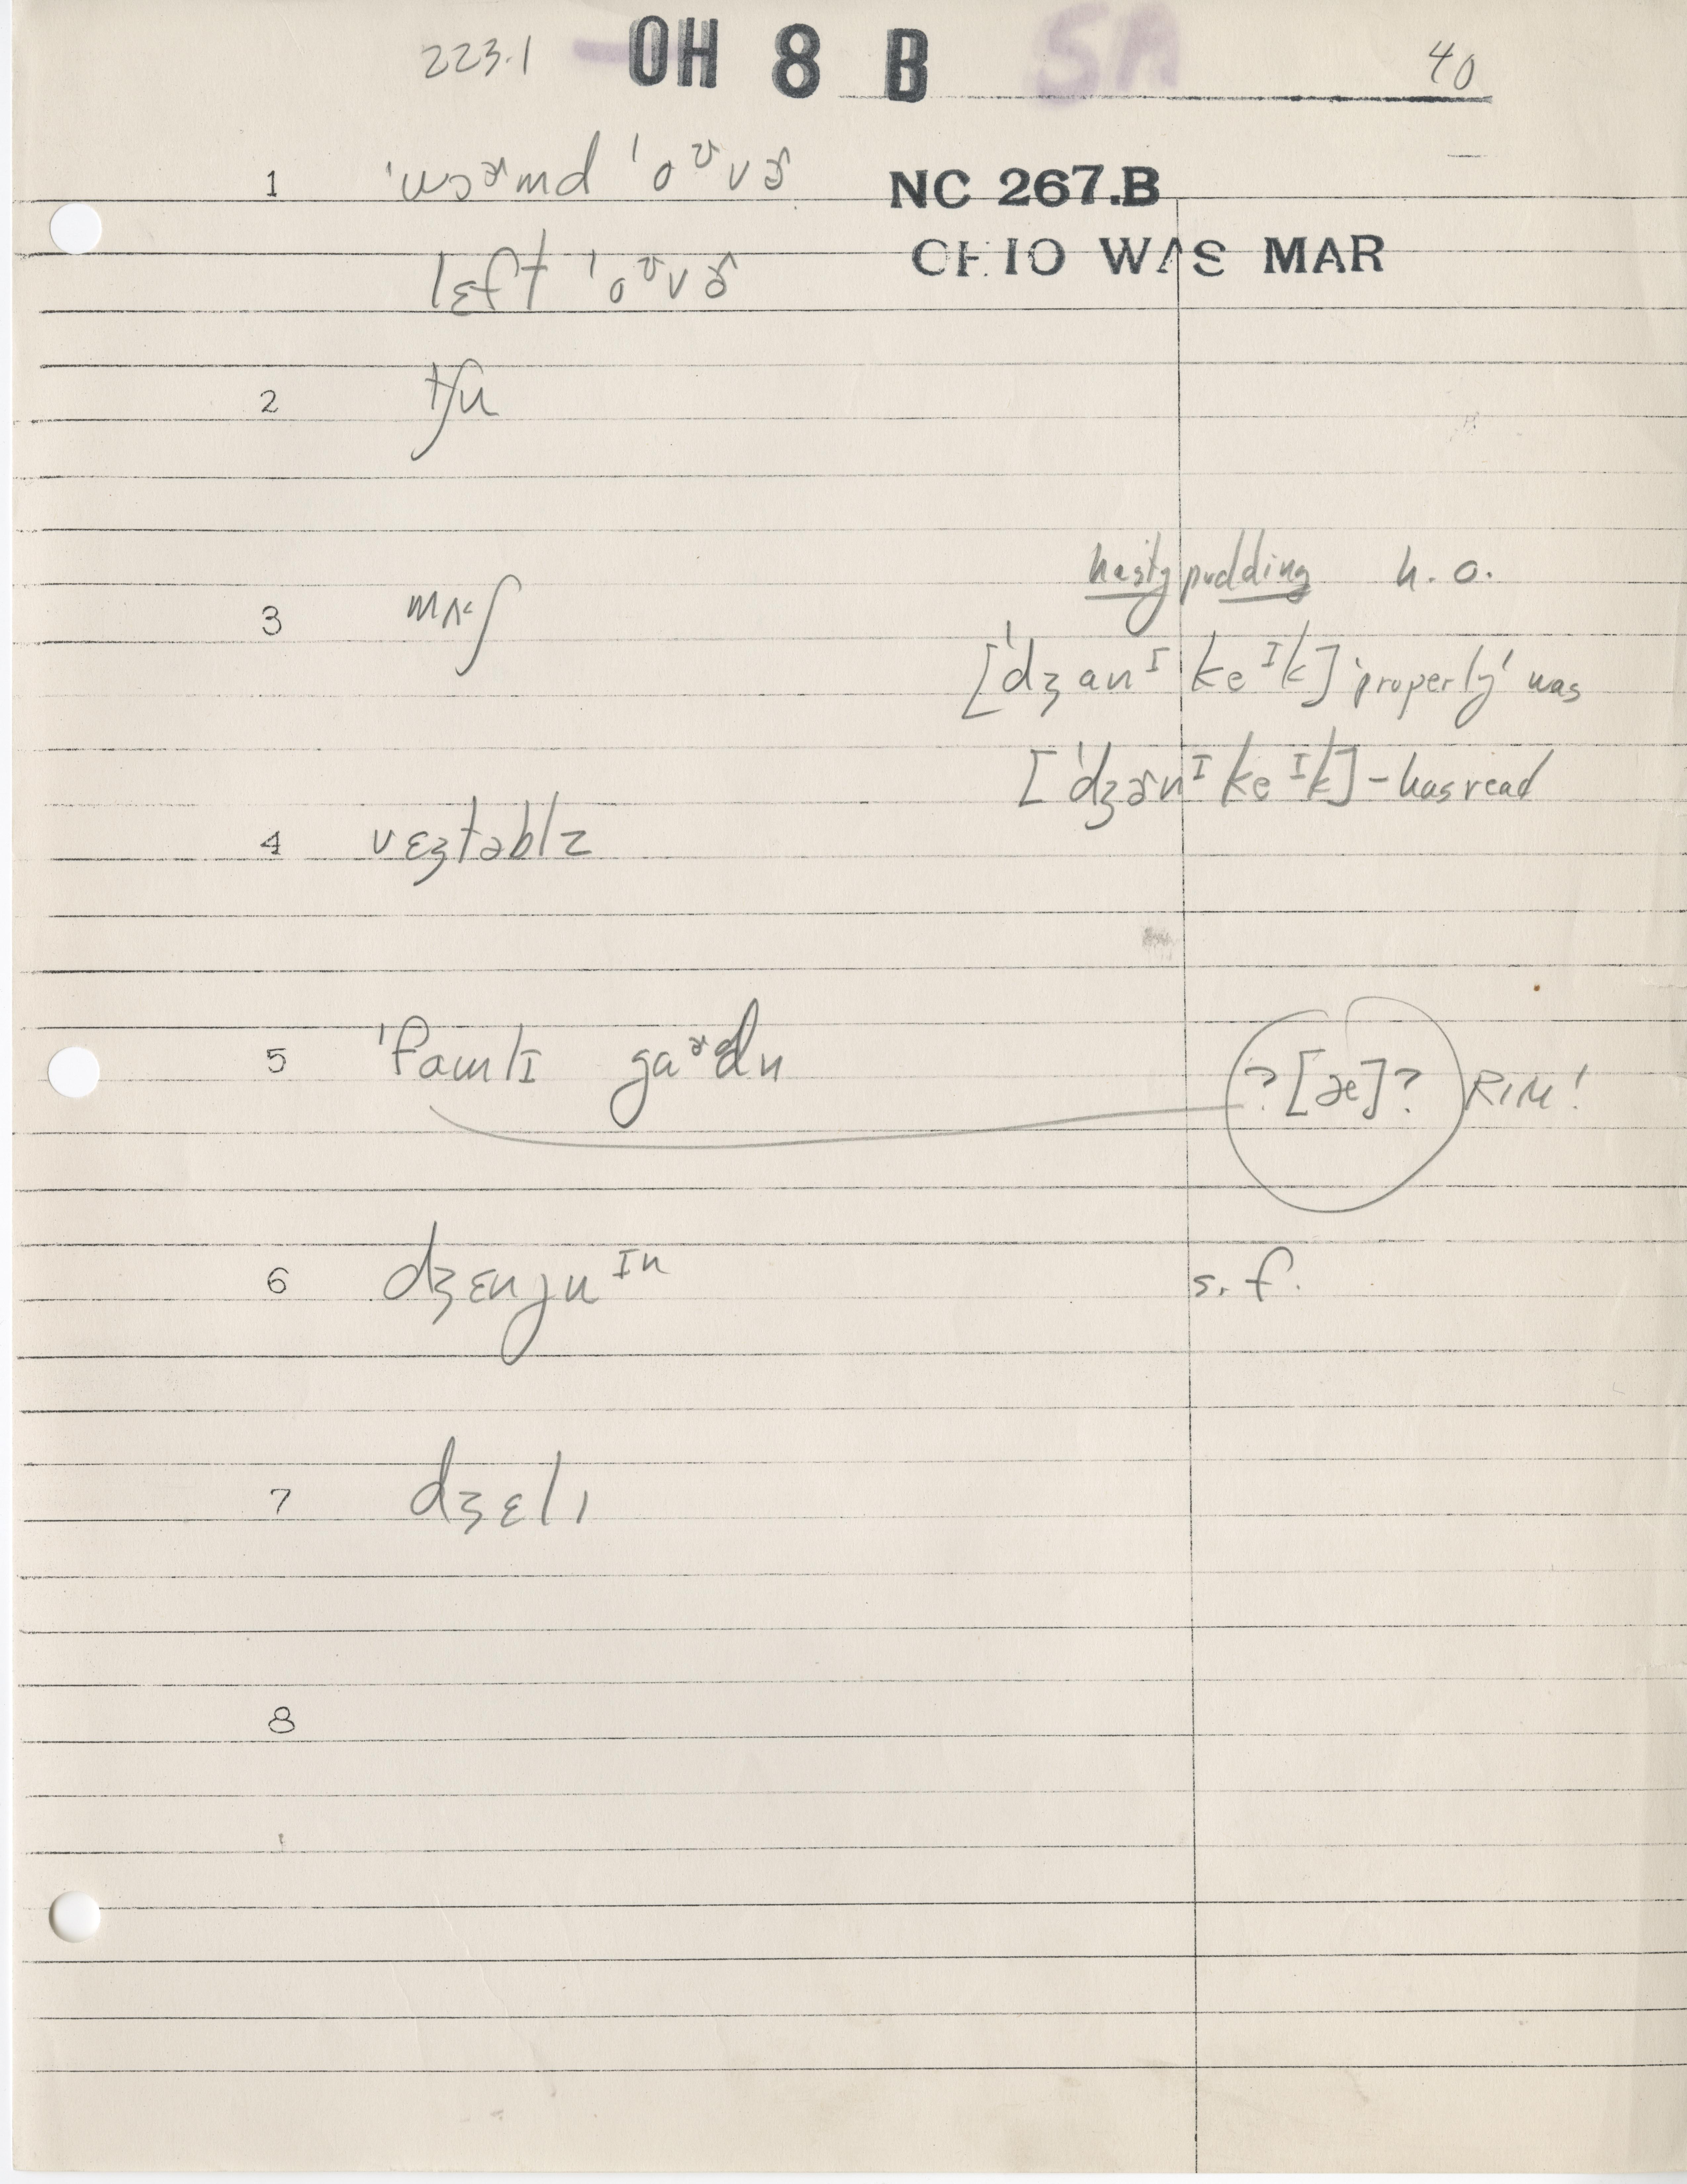 223.1 OH 8 B SA 40
1 ˈwɔɚmd ˈoᶷvɚ NC 267.B
OHIO WAS MAR
lɛft ˈoᶷvɚ
2 tʃu
hasty pudding h. o.
3 mʌʃ
[ˈdʒanᴵ keᴵk] 'properly' was
[ˈdʒɚnᴵ keᴵk] – has read
4 vɛʒtəblz
5 ˈfamlɪ gaɚdn ?[æ]? RIM!
6 dʒɛnjuᴵⁿ s. f.
7 dʒɛlı
8